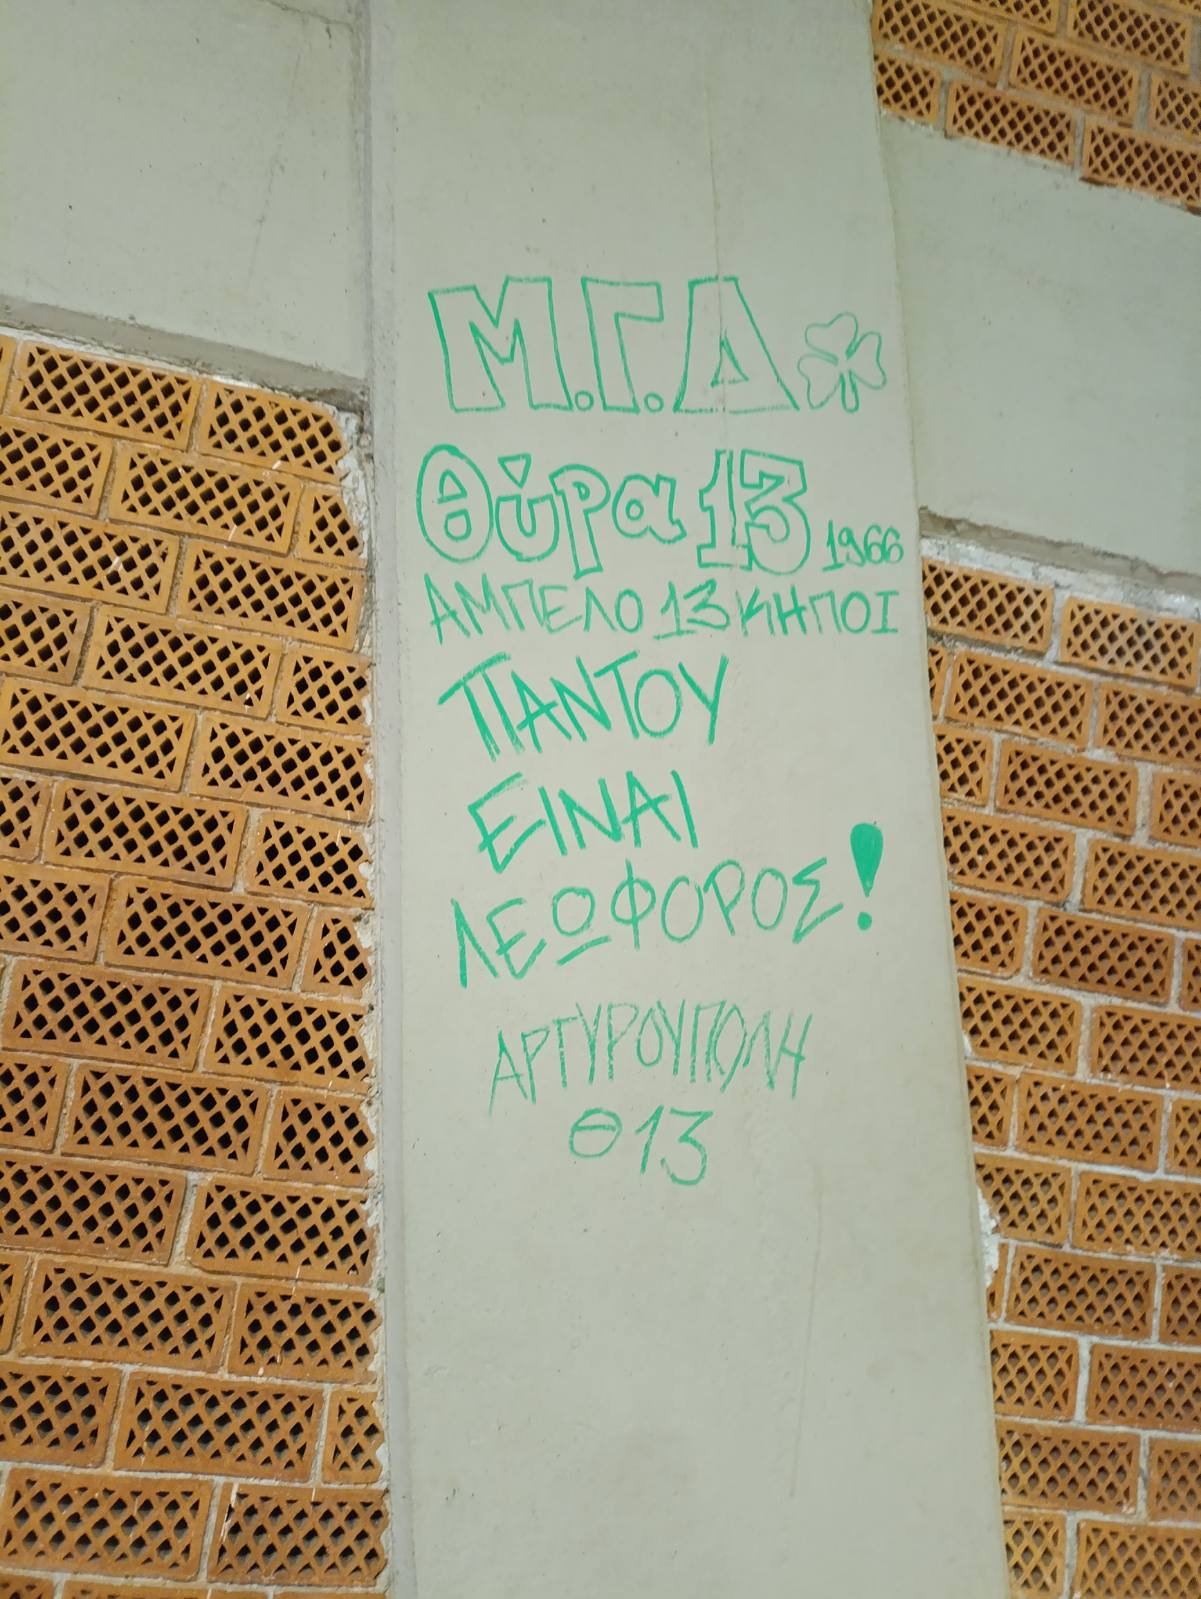 Μ.Γ.Δ
Θύρα 13 1966
ΑΜΠΕΛΟ 13 ΚΗΠΟΙ
ΠΑΝΤΟΥ
ΕΙΝΑΙ
ΛΕΩΦΟΡΟΣ!
ΑΡΓΥΡΟΥΠΟΛΗ
Θ13